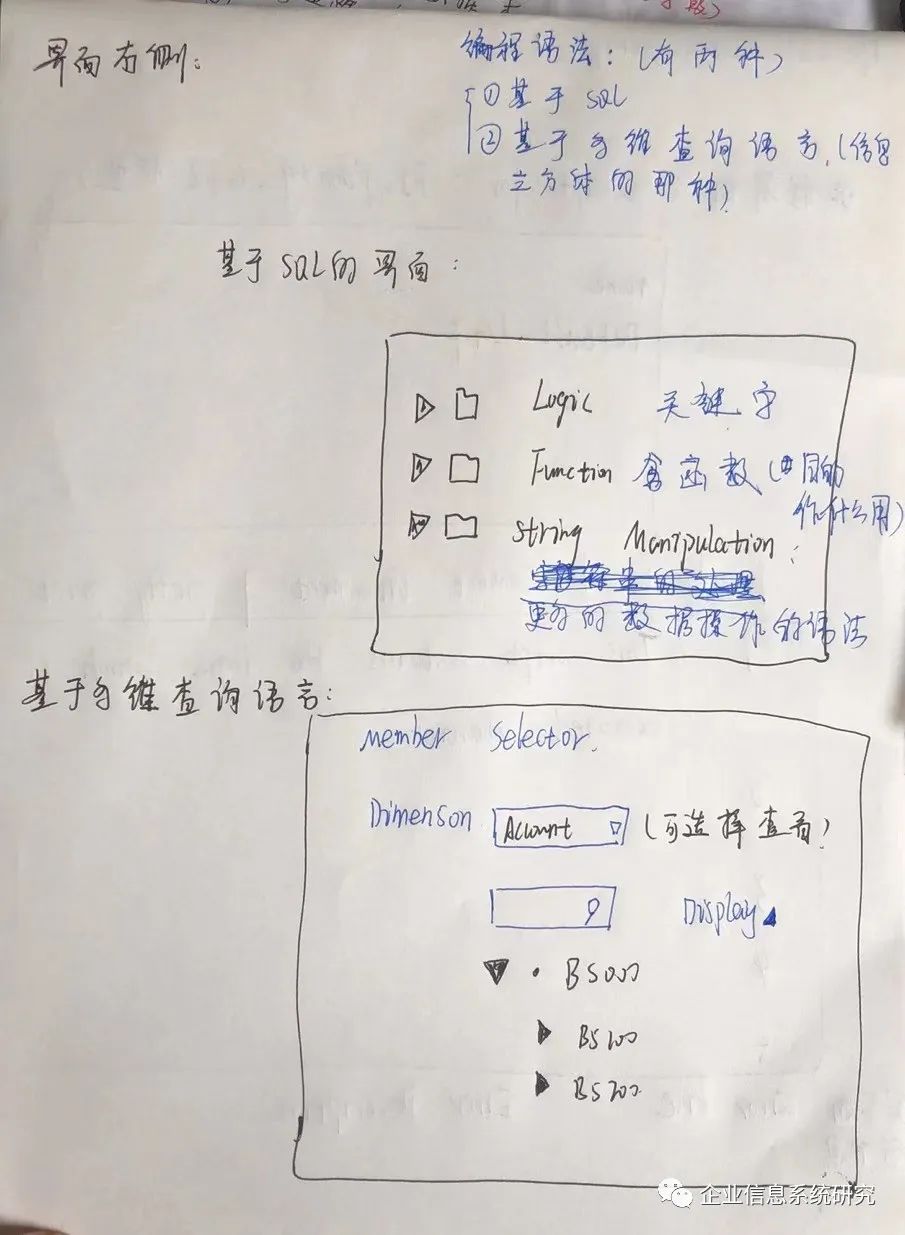 界面右侧:
编程语法:(有两种)
①基于SQL
②基于多维查询语言,(信息
立方体的那种)
基于SQL的界面:
Logic 关键字
Function 含函数(目的
作什么用)
String Manipulation:
更多的数据操作的语法
基于多维查询语言:
Member Selector.
Dimenson Account (可选择查看)
Display
BS000
BS100
BS200
企业信息系统研究